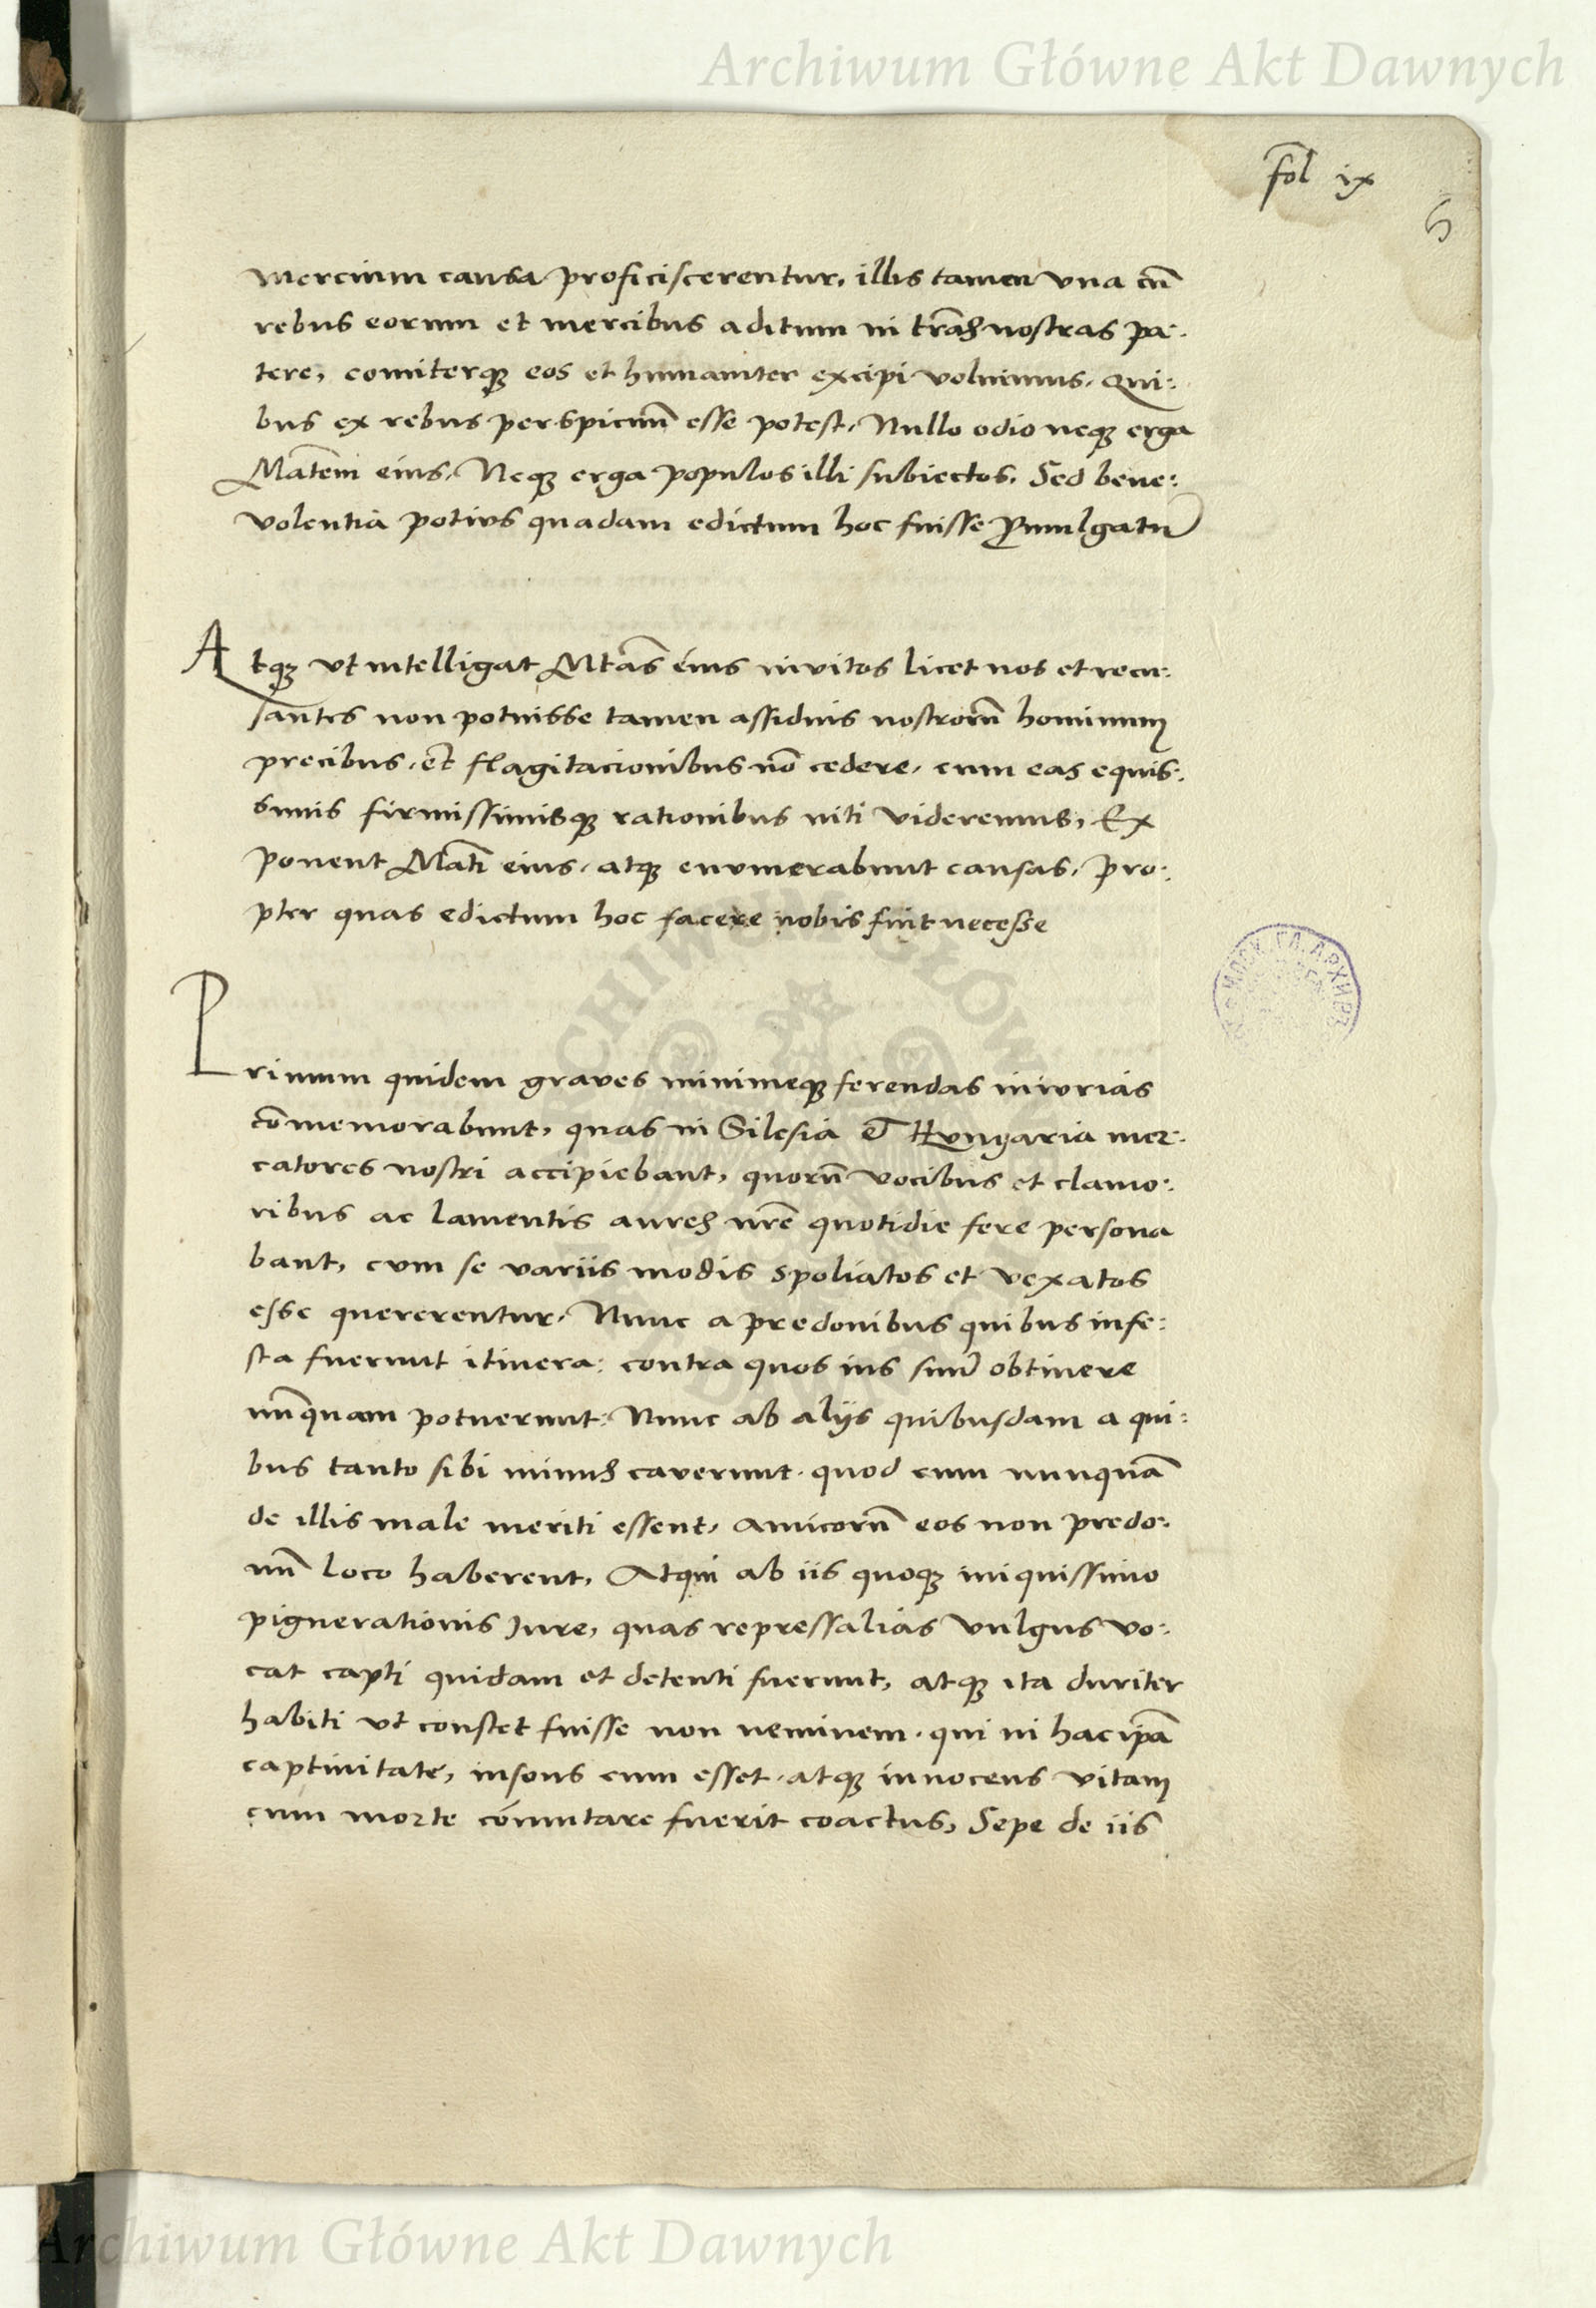 Archiwum Główne Akt Dawnych
fol ix
5
mercium causa proficiscerentur, illis tamen vna cũ
rebus eorum et mercibus aditum in trãs nostras pa:
tere, comiterqȝ eos et humaniter excipi voluimus. Qui:
bus ex rebus perspicuũ esse potest, Nullo odio neqȝ erga
Matẽm eius, Neqȝ erga populos illi subiectos. Sed bene:
volentia potius quadam edictum hoc fuisse ꝓmulgatũ
Atqȝ vt intelligat Mtãs eius invitos licet nos et recu:
santes non potuisse tamen assiduis nostrorũ hominum
precibus, et flagitacionibus nõ cedere, cum eas equis:
simis firmissimisqȝ rationibus niti videremus, Ex
ponent Matĩ eius, atqȝ envmerabunt causas, pro:
pter quas edictum hoc facere nobis fuit necesse
Primum quidem graves minimeqȝ ferendas iniurias
cõmemorabunt, quas in Silesia et Hungaria mer:
catores nostri accipiebant, quorũ vocibus et clamo:
ribus ac lamentis aures nrẽ quotidie fere persona
bant, cvm se variis modis spoliatos et vexatos
esse quererentur, Nunc a predonibus quibus infe:
sta fuerunt itinera: contra quos ius suũ obtinere
nũquam potuerunt: Nunc ab alijs quibusdam a qui:
bus tanto sibi minus caverunt, quod cum nunquã
de illis male meriti essent, amicorũ eos non predo:
nũ loco haberent, Atqui ab iis quoqȝ iniquissimo
pignerationis Iure, quas repressalias vulgus vo:
cat capti quidam et detenti fuerunt, atqȝ ita duriter
habiti vt constet fuisse non neminem, qui in hac ipã
captiuitate, insons cum esset, atqȝ innocens vitam
cum morte cõmutare fuerit coactus, Sepe de iis
Archiwum Główne Akt Dawnych